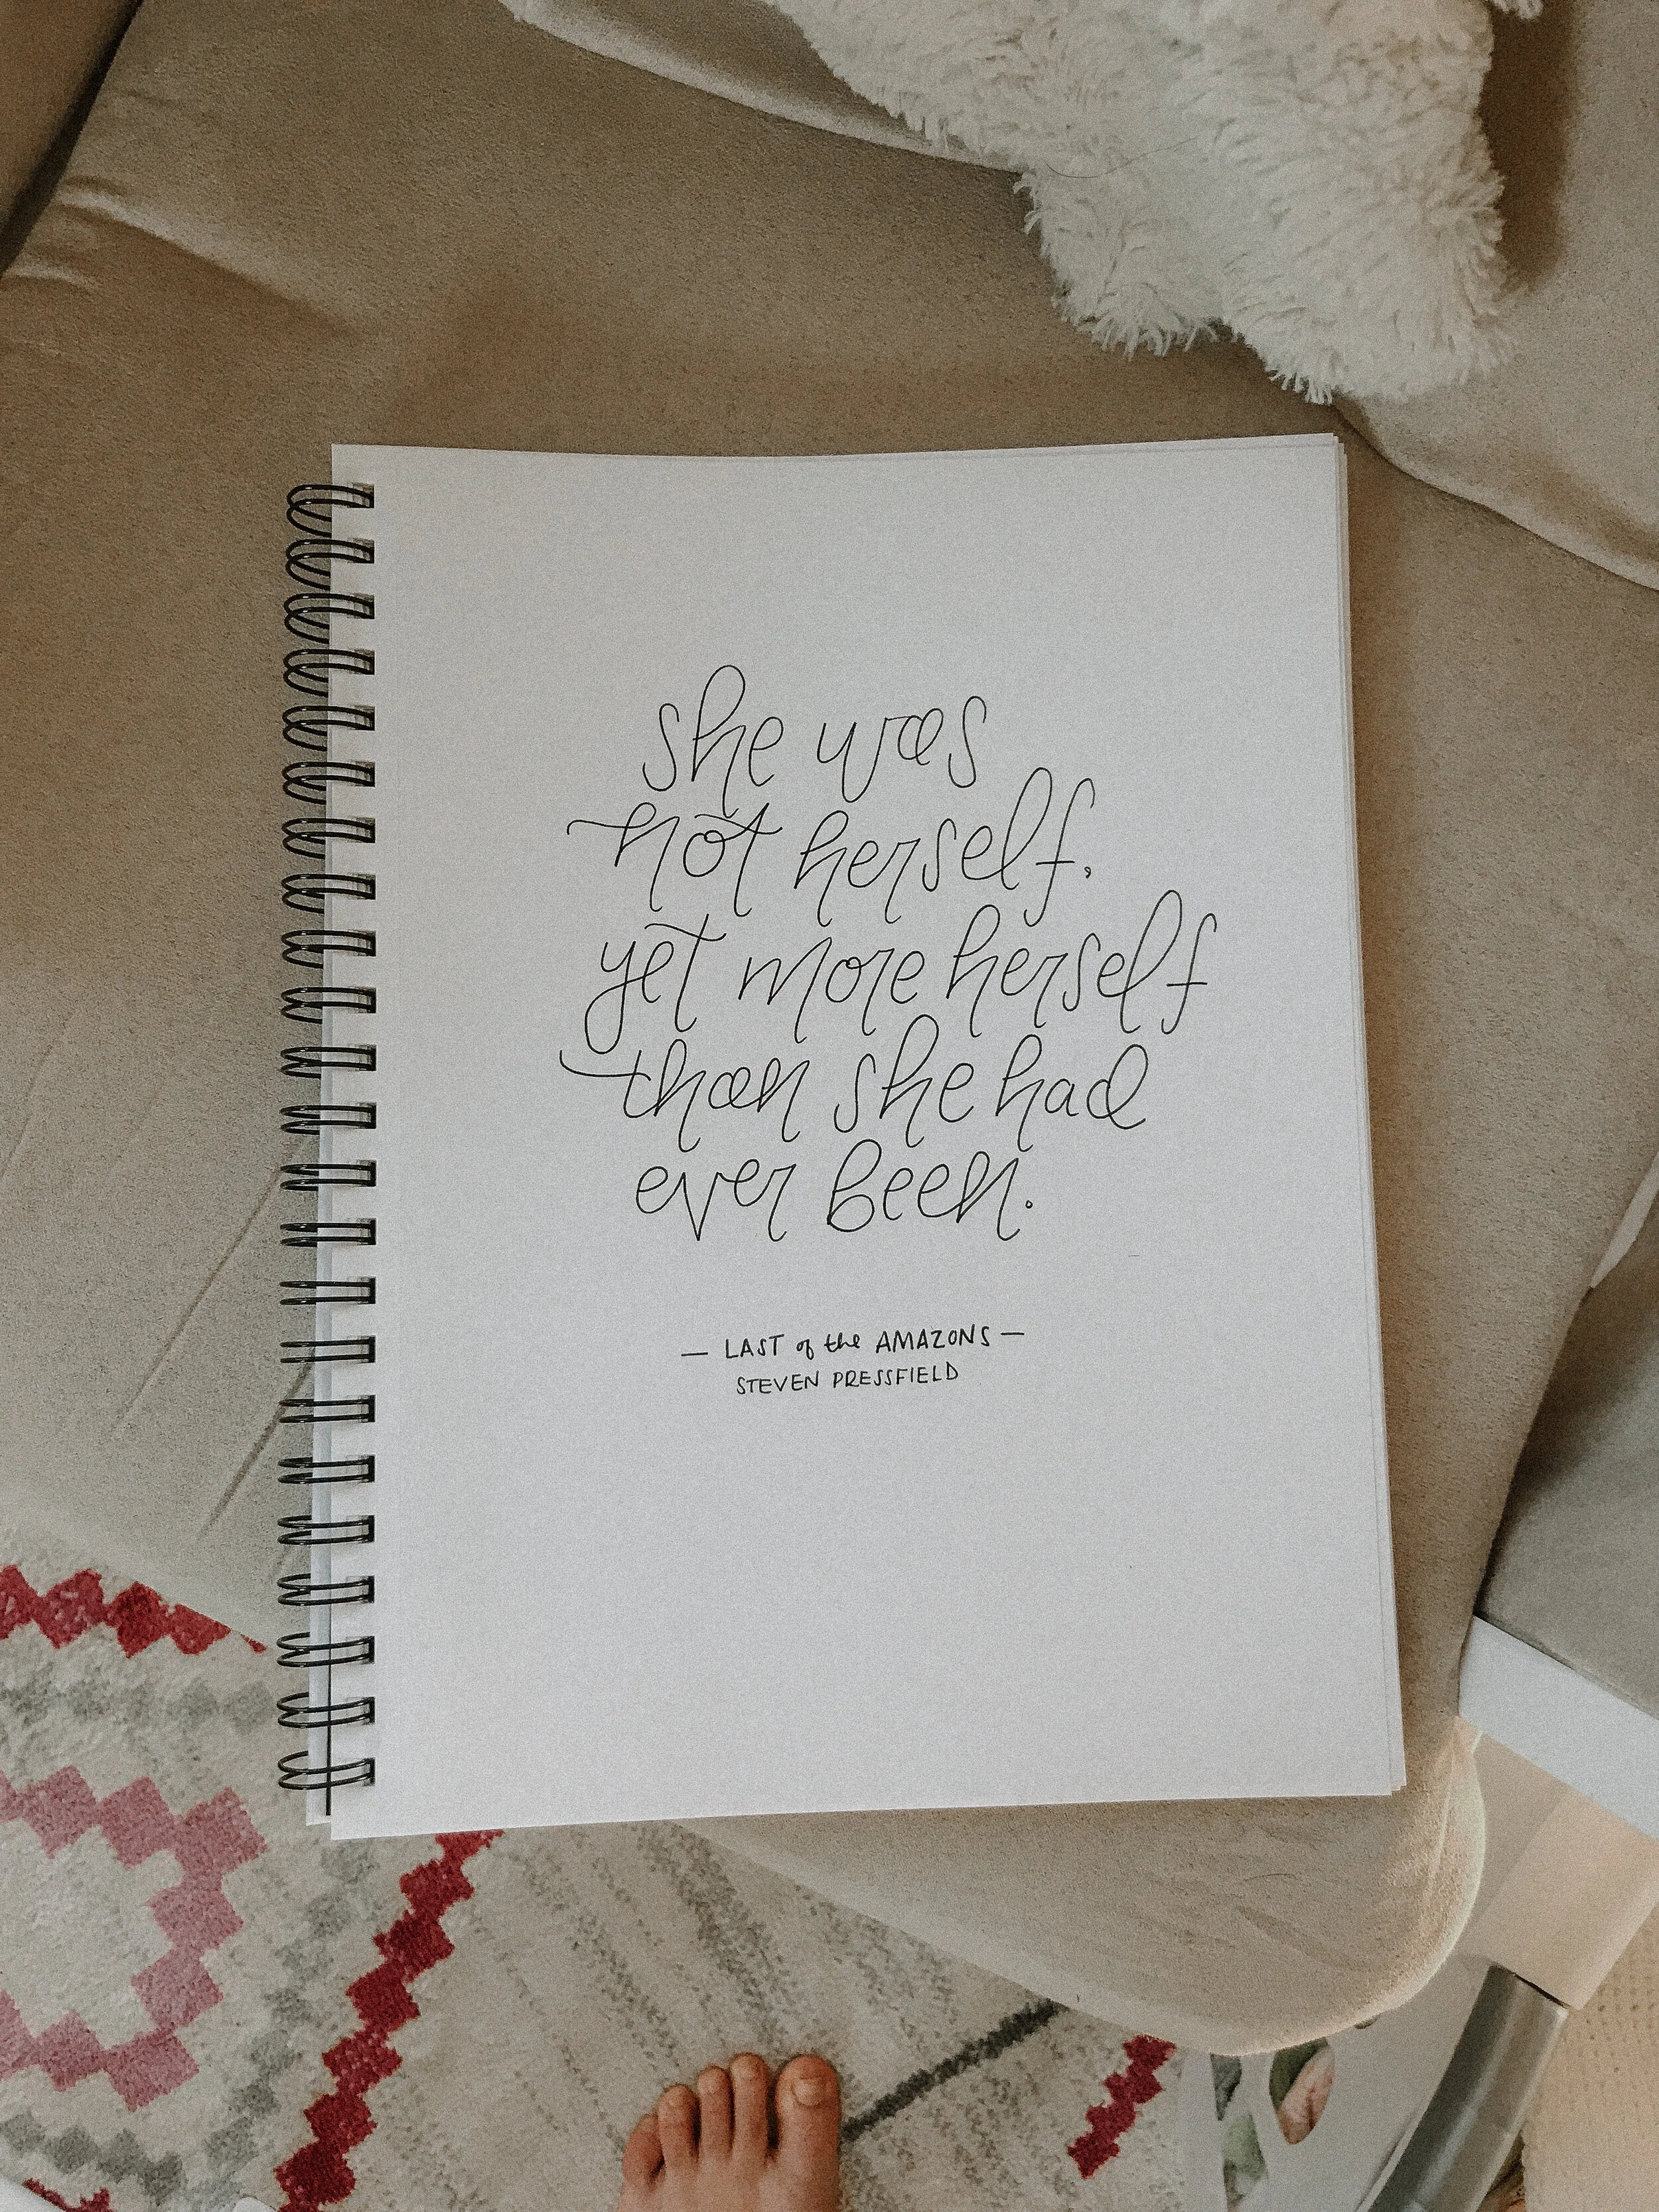 she was
not herself,
yet more herself
than she had
ever been.
— LAST of the AMAZONS —
STEVEN PRESSFIELD